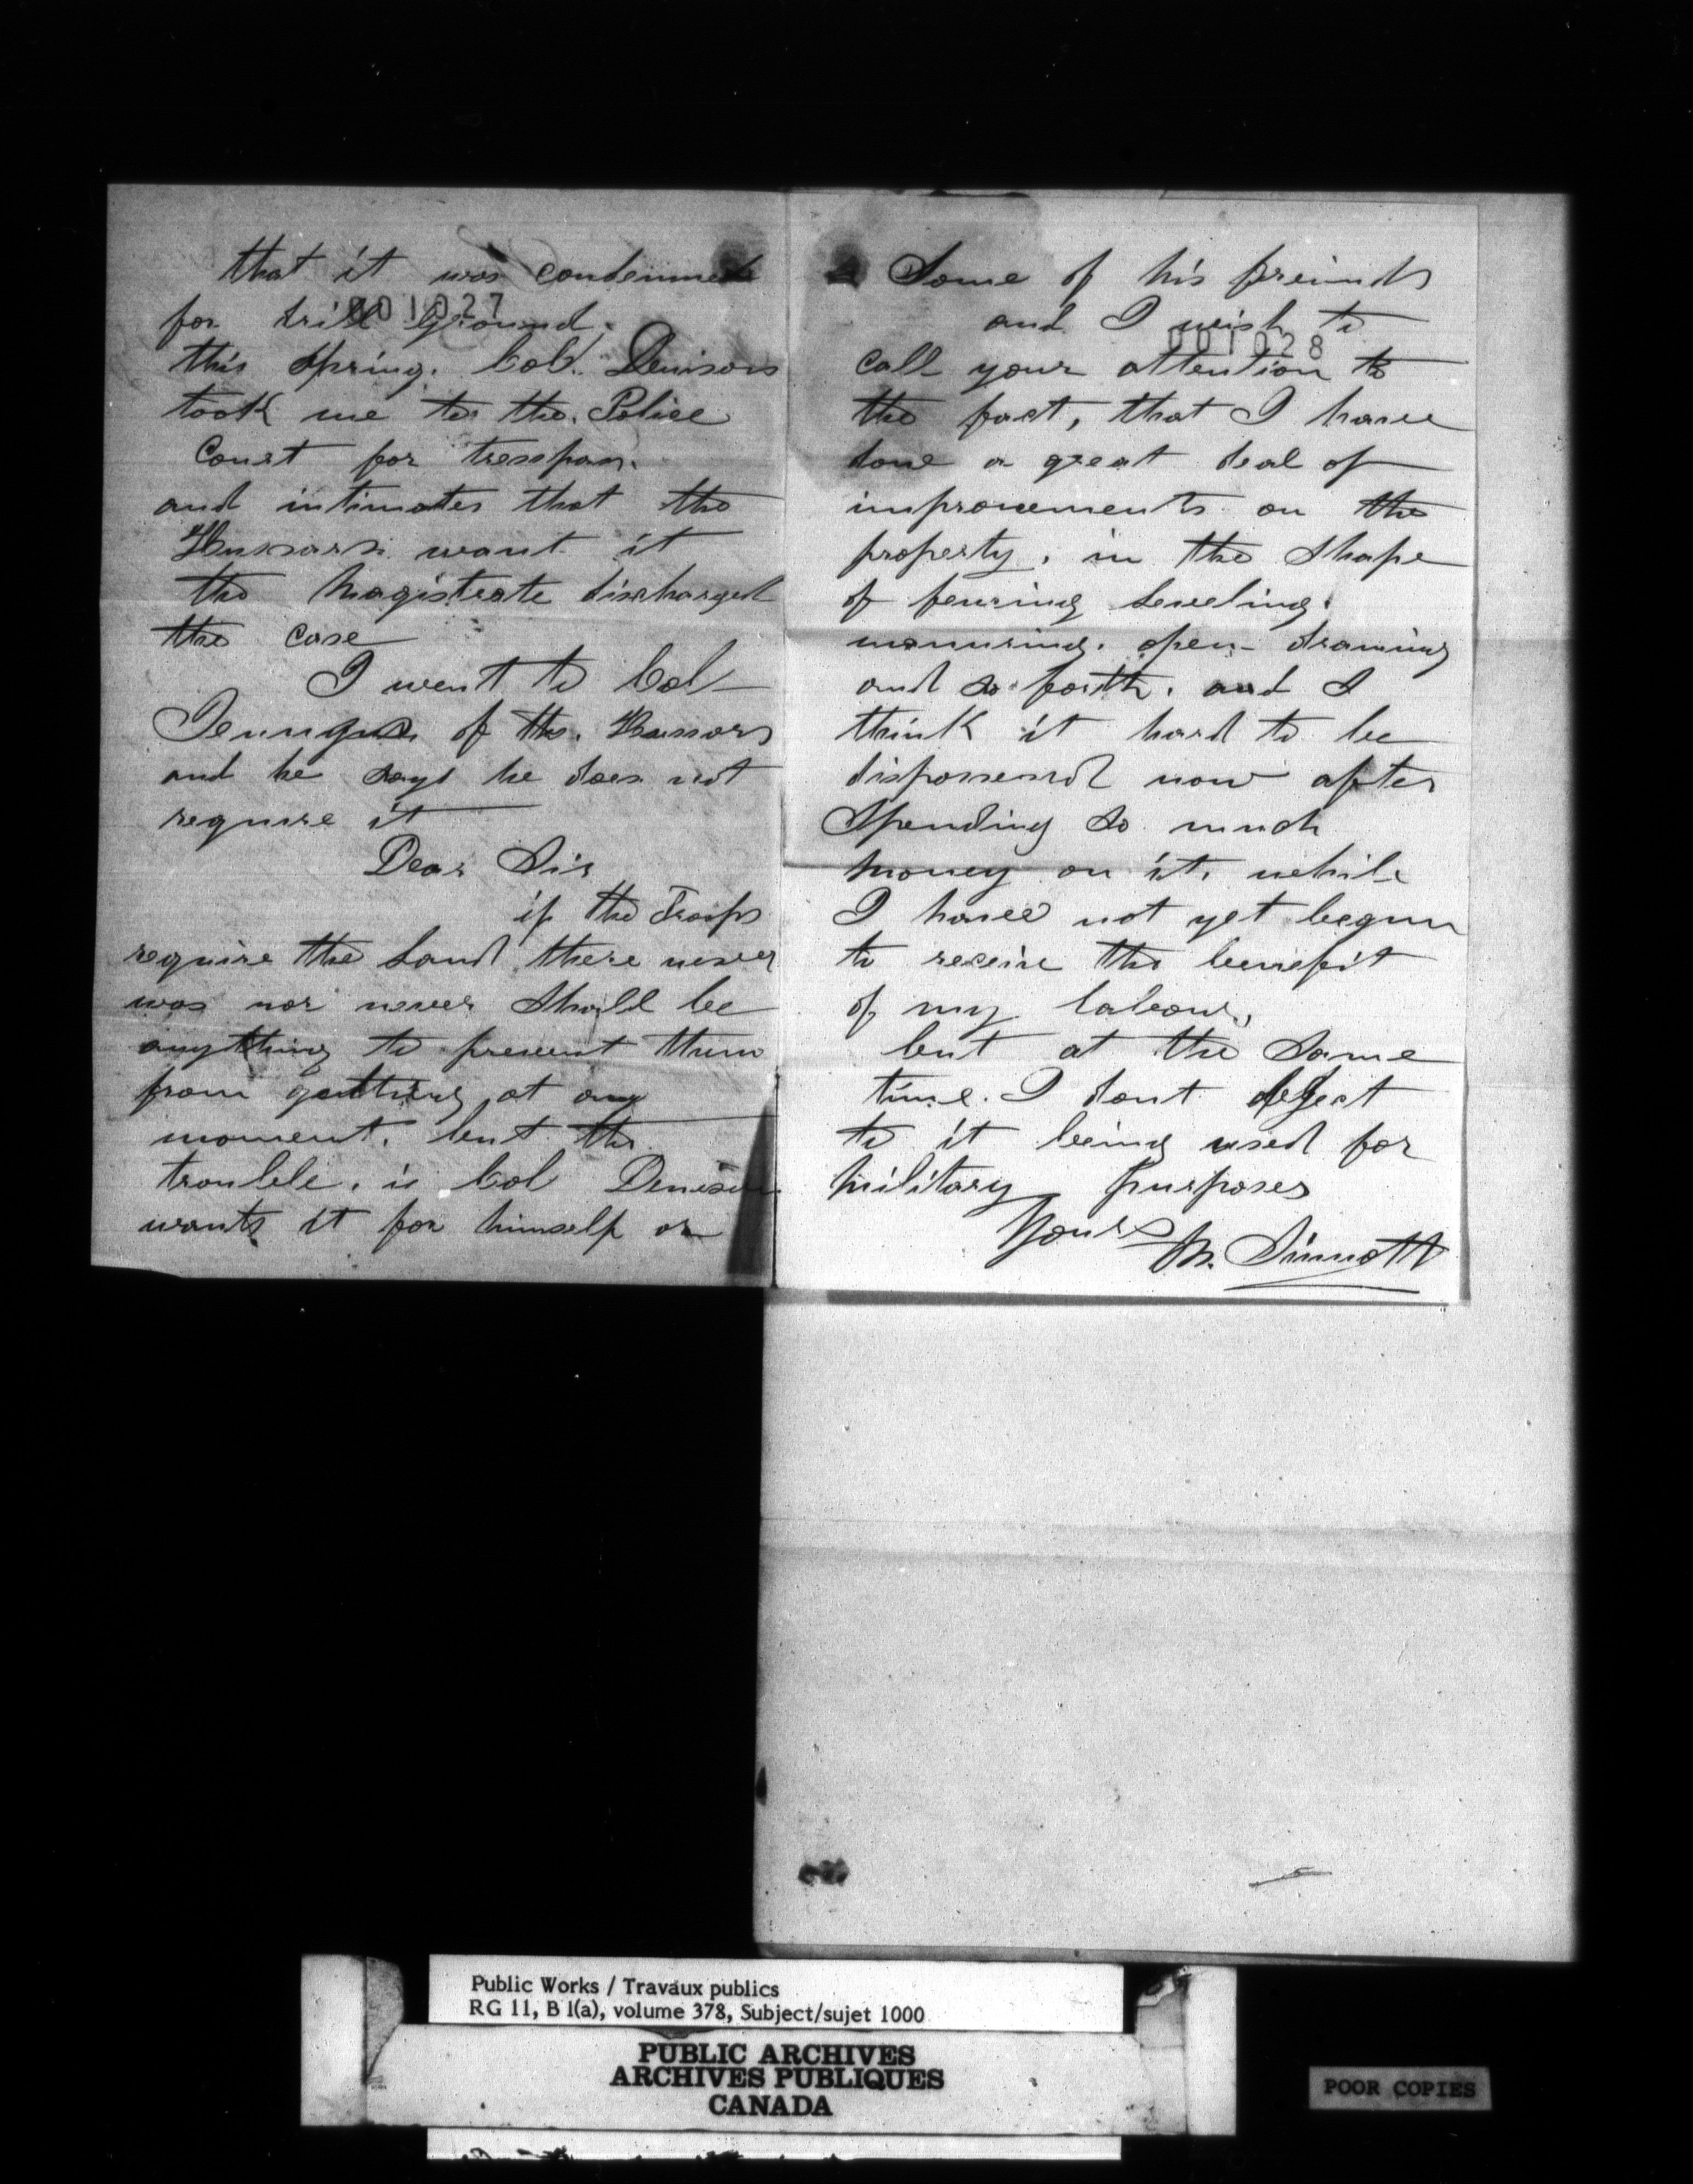 that it was condemned
001027
for drill ground.
this Spring. Col. Denison
took me to the Police
Court for tresspass.
and intimates that the
Hussars want it
the Magistrate discharged
the case
I went to Col
of the Hussars
and he says he does not
require it
Dear Sir
if the Troops
require the Land there never
was nor never Should be
anything to prevent them
from getting at any
moment. but the
trouble. is Col Denison
wants it for himself or
Some of his freinds
and I wish to
001028
call your attention to
the fact, that I have
done a great deal of
improvements on the
property. in the Shape
of fencing Leveling.
manuring. open draining
and so forth. and I
think it hard to be
dispossessd now after
Spending so much
money on it. while
I have not yet begun
to receive the benefit
of my labour,
but at the Same
time. I dont object
to it being used for
Military purposes
Yours
M. Sinnott
Public Works / Travaux publics
RG 11, B 1(a), volume 378, Subject/sujet 1000
PUBLIC ARCHIVES
ARCHIVES PUBLIQUES
CANADA
POOR COPIES